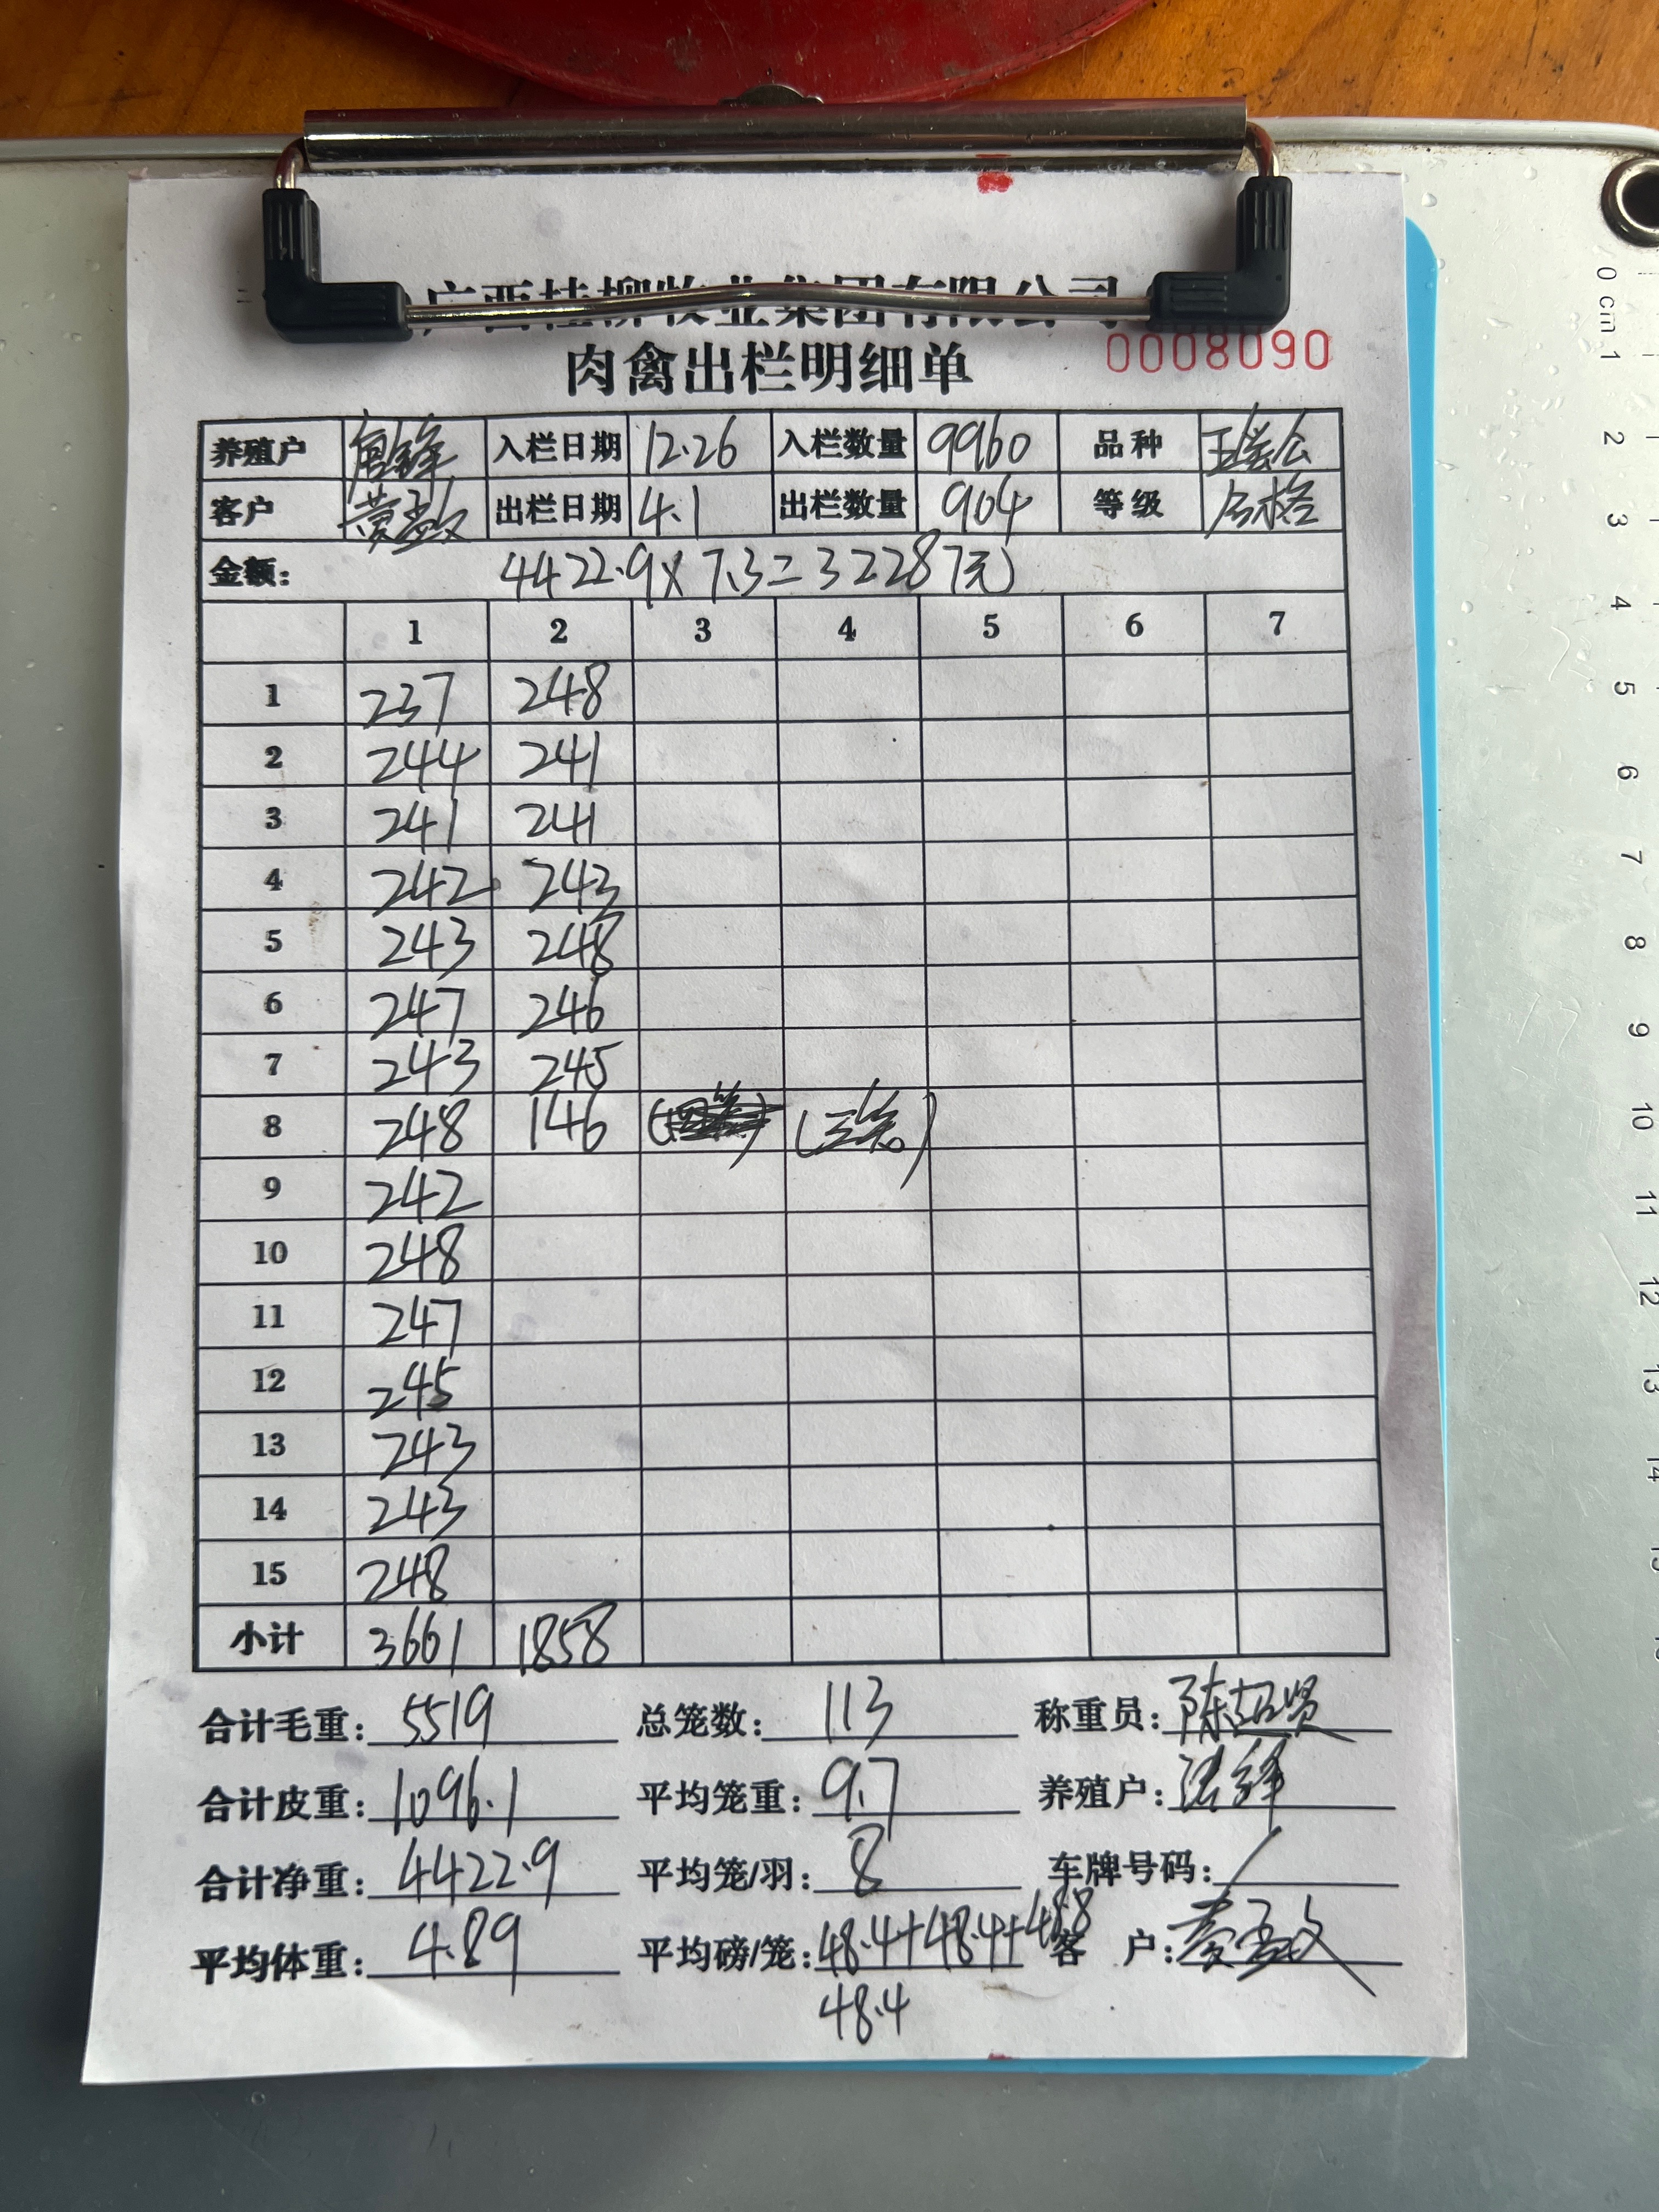 广西桂柳牧业集团有限公司
肉禽出栏明细单 0008090
养殖户 唐锋 入栏日期 12.26 入栏数量 9960 品种
客户 黄孟文 出栏日期 4.1 出栏数量 904 等级 合格
金额: 4422.9×7.3=32287元
1 2 3 4 5 6 7
1 237 248
2 244 241
3 241 241
4 242 243
5 243 248
6 247 246
7 243 245
8 248 146 (三笼)
9 242
10 248
11 247
12 245
13 243
14 243
15 248
小计 3661 1858
合计毛重: 5519 总笼数: 113 称重员: 陈超贤
合计皮重: 1096.1 平均笼重: 9.7 养殖户:
合计净重: 4422.9 平均笼/羽: 8 车牌号码: /
平均体重: 4.89 平均磅/笼: 48.4+48.4+48.8 客户: 黄孟文
48.4
0 cm 1
2
3
4
5
6
7
8
9
10
11
12
13
14